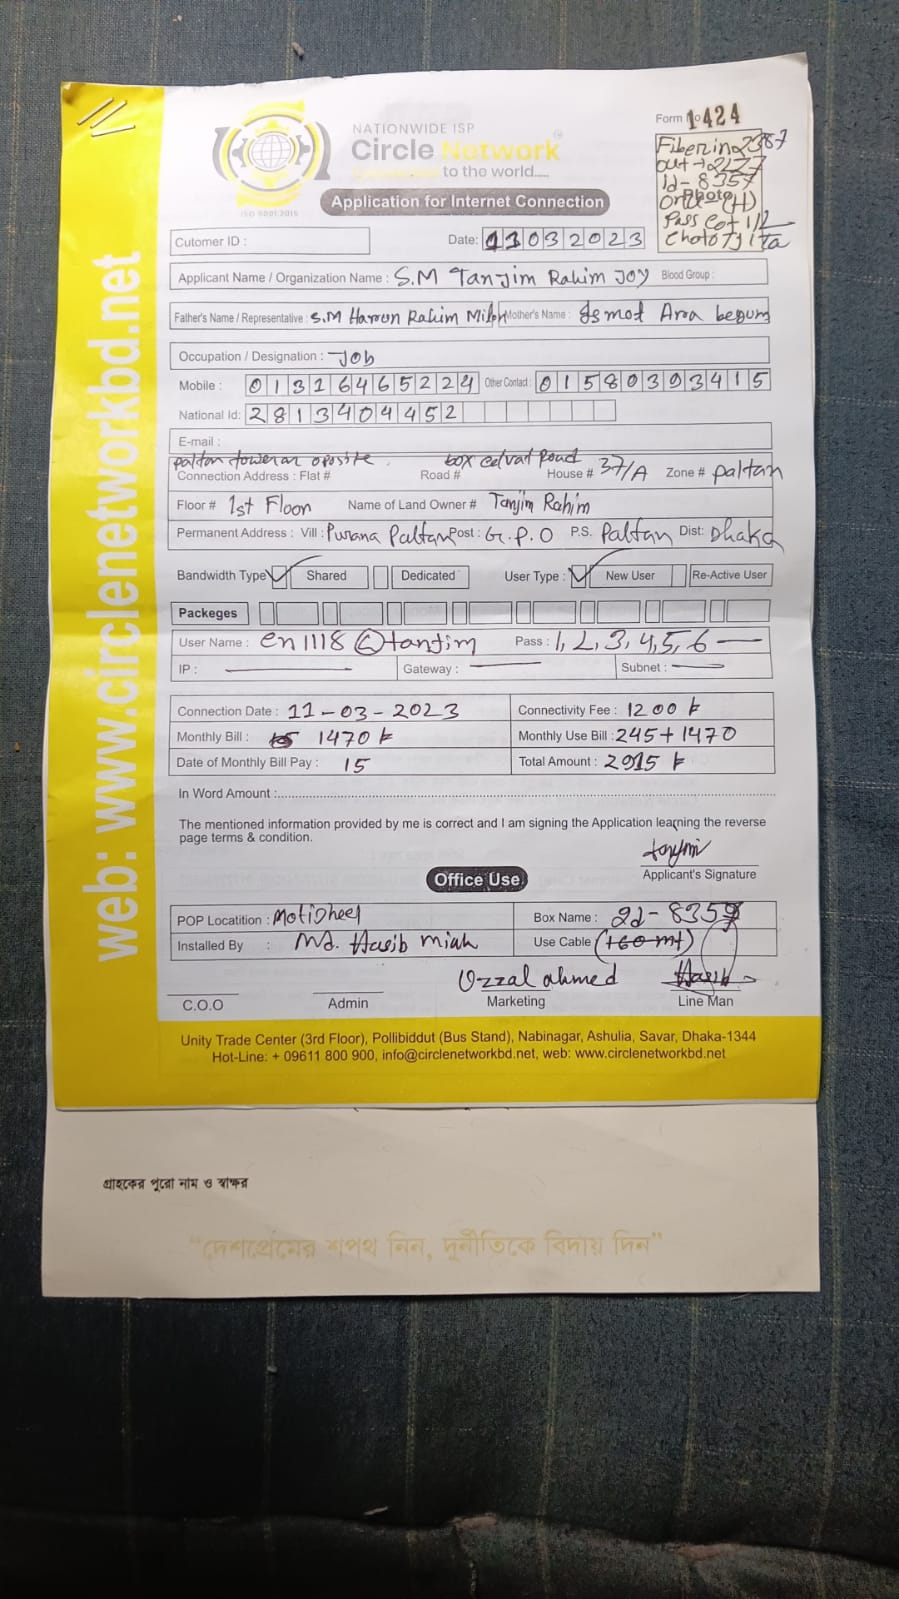 NATIONWIDE ISP
Circle Network
to the world....
ISO 9001:2015
Application for Internet Connection
Form No 1424
Fiber in 2387
out → 2177
Id- 8357
Photo
Onu (H)
Pass
Cutomer ID :
Date: 11032023
Applicant Name / Organization Name : S.M Tanjim Rahim Joy Blood Group :
Father's Name / Representative : S.M Haroun Rahim Milon Mother's Name : Ismot Ara begum
Occupation / Designation : Job
Mobile : 01316465224 Other Contact : 01580393415
National Id: 2813404452
E-mail :
paltan towerar oposite. box calvat Road
Connection Address : Flat # Road # House # 37/A Zone # paltan
Floor # 1st Floor Name of Land Owner # Tanjim Rahim
Permanent Address : Vill : Purana Paltan Post : G.P.O P.S. Paltan Dist: Dhaka
Bandwidth Type Shared Dedicated User Type : New User Re-Active User
Packeges
User Name : en1118@tanjim Pass : 1,2,3,4,5,6
IP : Gateway : Subnet :
Connection Date : 11-03-2023 Connectivity Fee : 1200
Monthly Bill : 1470 Monthly Use Bill : 245+1470
Date of Monthly Bill Pay : 15 Total Amount : 2915
In Word Amount :
The mentioned information provided by me is correct and I am signing the Application learning the reverse
page terms & condition.
tanjim
Applicant's Signature
Office Use
POP Locatition : Motijheel Box Name : 2d-8357
Installed By : Md. Hasib Miah Use Cable (160 mt)
Uzzal ahmed Hasib
C.O.O Admin Marketing Line Man
Unity Trade Center (3rd Floor), Pollibiddut (Bus Stand), Nabinagar, Ashulia, Savar, Dhaka-1344
Hot-Line: + 09611 800 900, info@circlenetworkbd.net, web: www.circlenetworkbd.net
web: www.circlenetworkbd.net
গ্রাহকের পুরো নাম ও স্বাক্ষর
“দেশপ্রেমের শপথ নিন, দুর্নীতিকে বিদায় দিন”